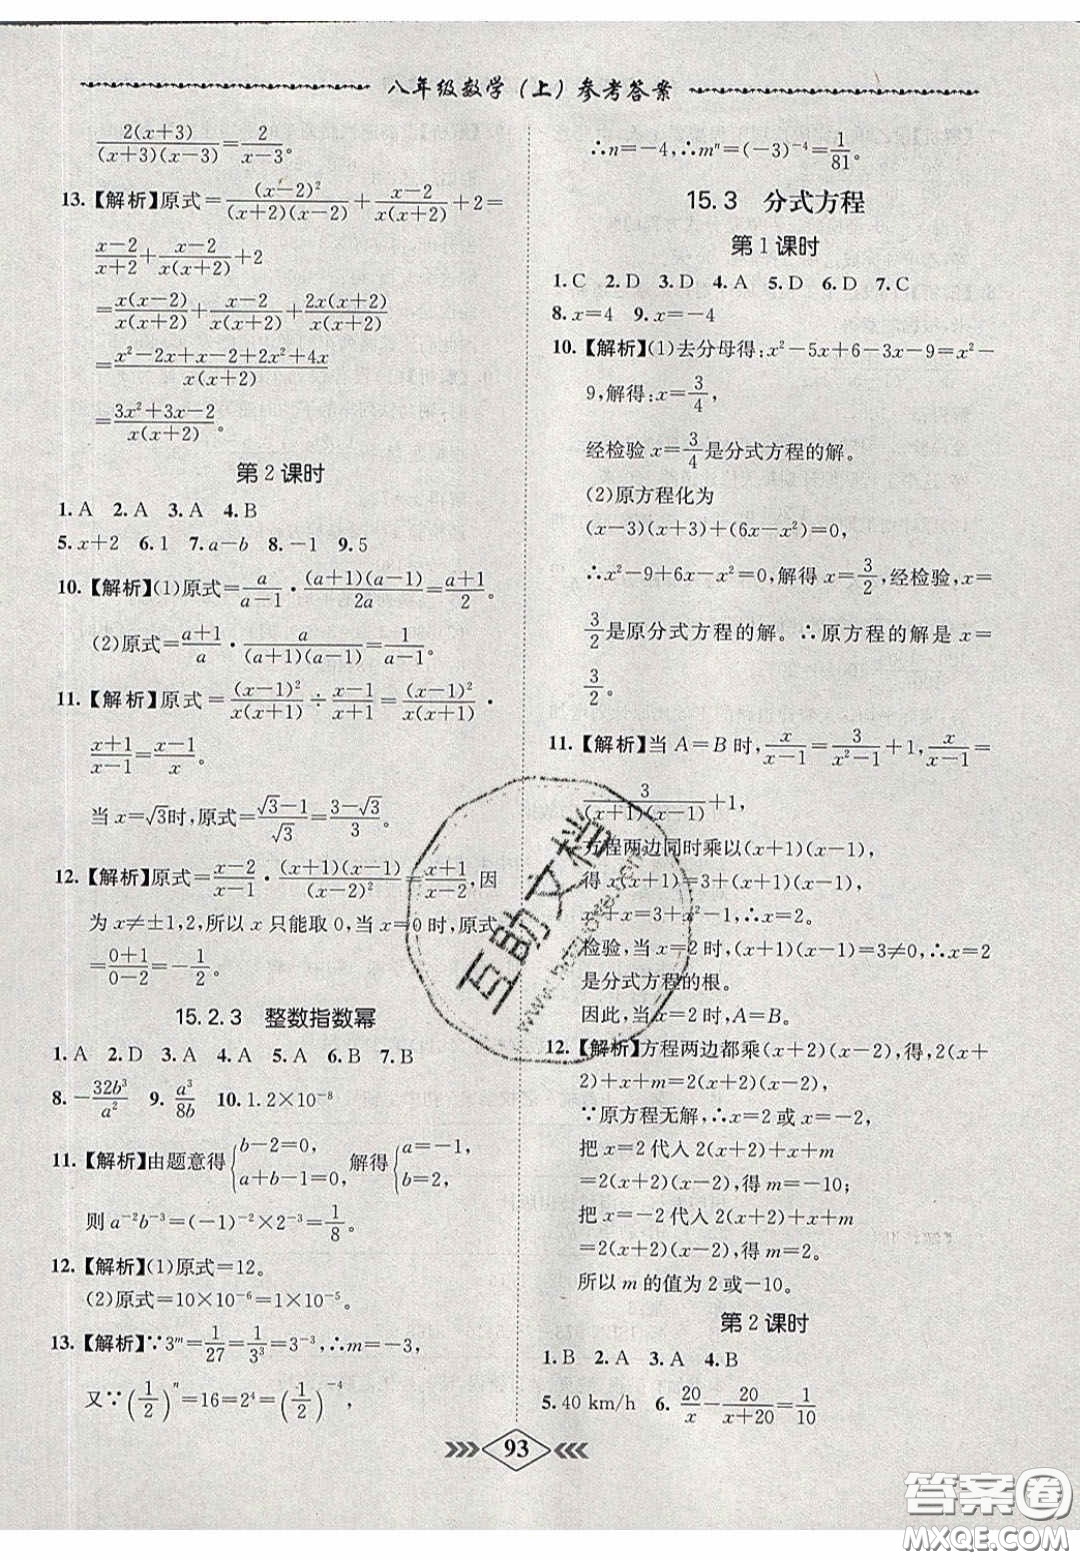 八年级数学(上)参考答案
2(x+3)/((x+3)(x-3))=2/(x-3)。
13.【解析】原式=(x-2)²/((x+2)(x-2))+(x-2)/(x(x+2))+2=
(x-2)/(x+2)+(x-2)/(x(x+2))+2
=x(x-2)/(x(x+2))+(x-2)/(x(x+2))+2x(x+2)/(x(x+2))
=(x²-2x+x-2+2x²+4x)/(x(x+2))
=(3x²+3x-2)/(x(x+2))。
第2课时
1.A 2.A 3.A 4.B
5.x+2 6.1 7.a-b 8.-1 9.5
10.【解析】(1)原式=a/(a-1)·(a+1)(a-1)/2a=(a+1)/2。
(2)原式=(a+1)/a·a/((a+1)(a-1))=1/(a-1)。
11.【解析】原式=(x-1)²/(x(x+1))÷(x-1)/(x+1)=(x-1)²/(x(x+1))·
(x+1)/(x-1)=(x-1)/x。
当x=√3时,原式=(√3-1)/√3=(3-√3)/3。
12.【解析】原式=(x-2)/(x-1)·(x+1)(x-1)/(x-2)²=(x+1)/(x-2),因
为x≠±1,2,所以x只能取0,当x=0时,原式
=(0+1)/(0-2)=-1/2。
15.2.3 整数指数幂
1.A 2.D 3.A 4.A 5.A 6.B 7.B
8.-32b³/a² 9.a³/8b 10.1.2×10⁻⁸
11.【解析】由题意得{b-2=0, a+b-1=0, 解得{a=-1, b=2,
则a⁻²b⁻³=(-1)⁻²×2⁻³=1/8。
12.【解析】(1)原式=12。
(2)原式=10×10⁻⁶=1×10⁻⁵。
13.【解析】∵3ᵐ=1/27=1/3³=3⁻³,∴m=-3,
又∵(1/2)ⁿ=16=2⁴=(1/2)⁻⁴,
∴n=-4,∴mⁿ=(-3)⁻⁴=1/81。
15.3 分式方程
第1课时
1.C 2.D 3.D 4.A 5.D 6.D 7.C
8.x=4 9.x=-4
10.【解析】(1)去分母得:x²-5x+6-3x-9=x²-
9,解得:x=3/4,
经检验x=3/4是分式方程的解。
(2)原方程化为
(x-3)(x+3)+(6x-x²)=0,
∴x²-9+6x-x²=0,解得x=3/2,经检验,x=
3/2是原分式方程的解。∴原方程的解是x=
3/2。
11.【解析】当A=B时,x/(x-1)=3/(x²-1)+1,x/(x-1)=
3/((x+1)(x-1))+1,
方程两边同时乘以(x+1)(x-1),
得x(x+1)=3+(x+1)(x-1),
x²+x=3+x²-1,∴x=2。
检验,当x=2时,(x+1)(x-1)=3≠0,∴x=2
是分式方程的根。
因此,当x=2时,A=B。
12.【解析】方程两边都乘(x+2)(x-2),得,2(x+
2)+x+m=2(x+2)(x-2),
∵原方程无解,∴x=2或x=-2,
把x=2代入2(x+2)+x+m
=2(x+2)(x-2),得m=-10;
把x=-2代入2(x+2)+x+m
=2(x+2)(x-2),得m=2。
所以m的值为2或-10。
第2课时
1.B 2.A 3.A 4.B
5.40 km/h 6.20/x-20/(x+20)=1/10
93
互助文档
答案圈
MXQE.COM